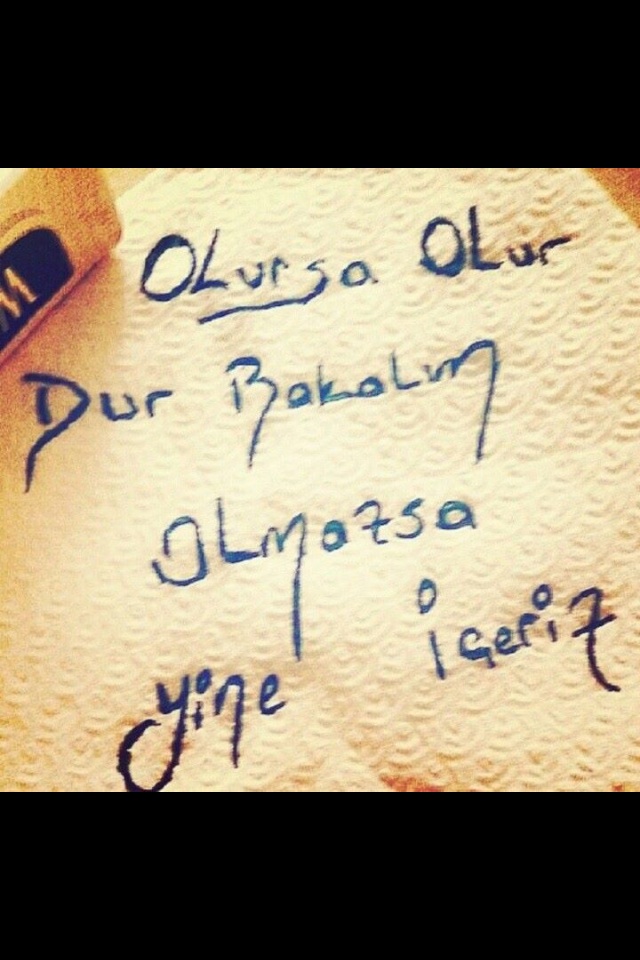 OLursa OLur
Dur BakaLım
OLmazsa
yine içeriz